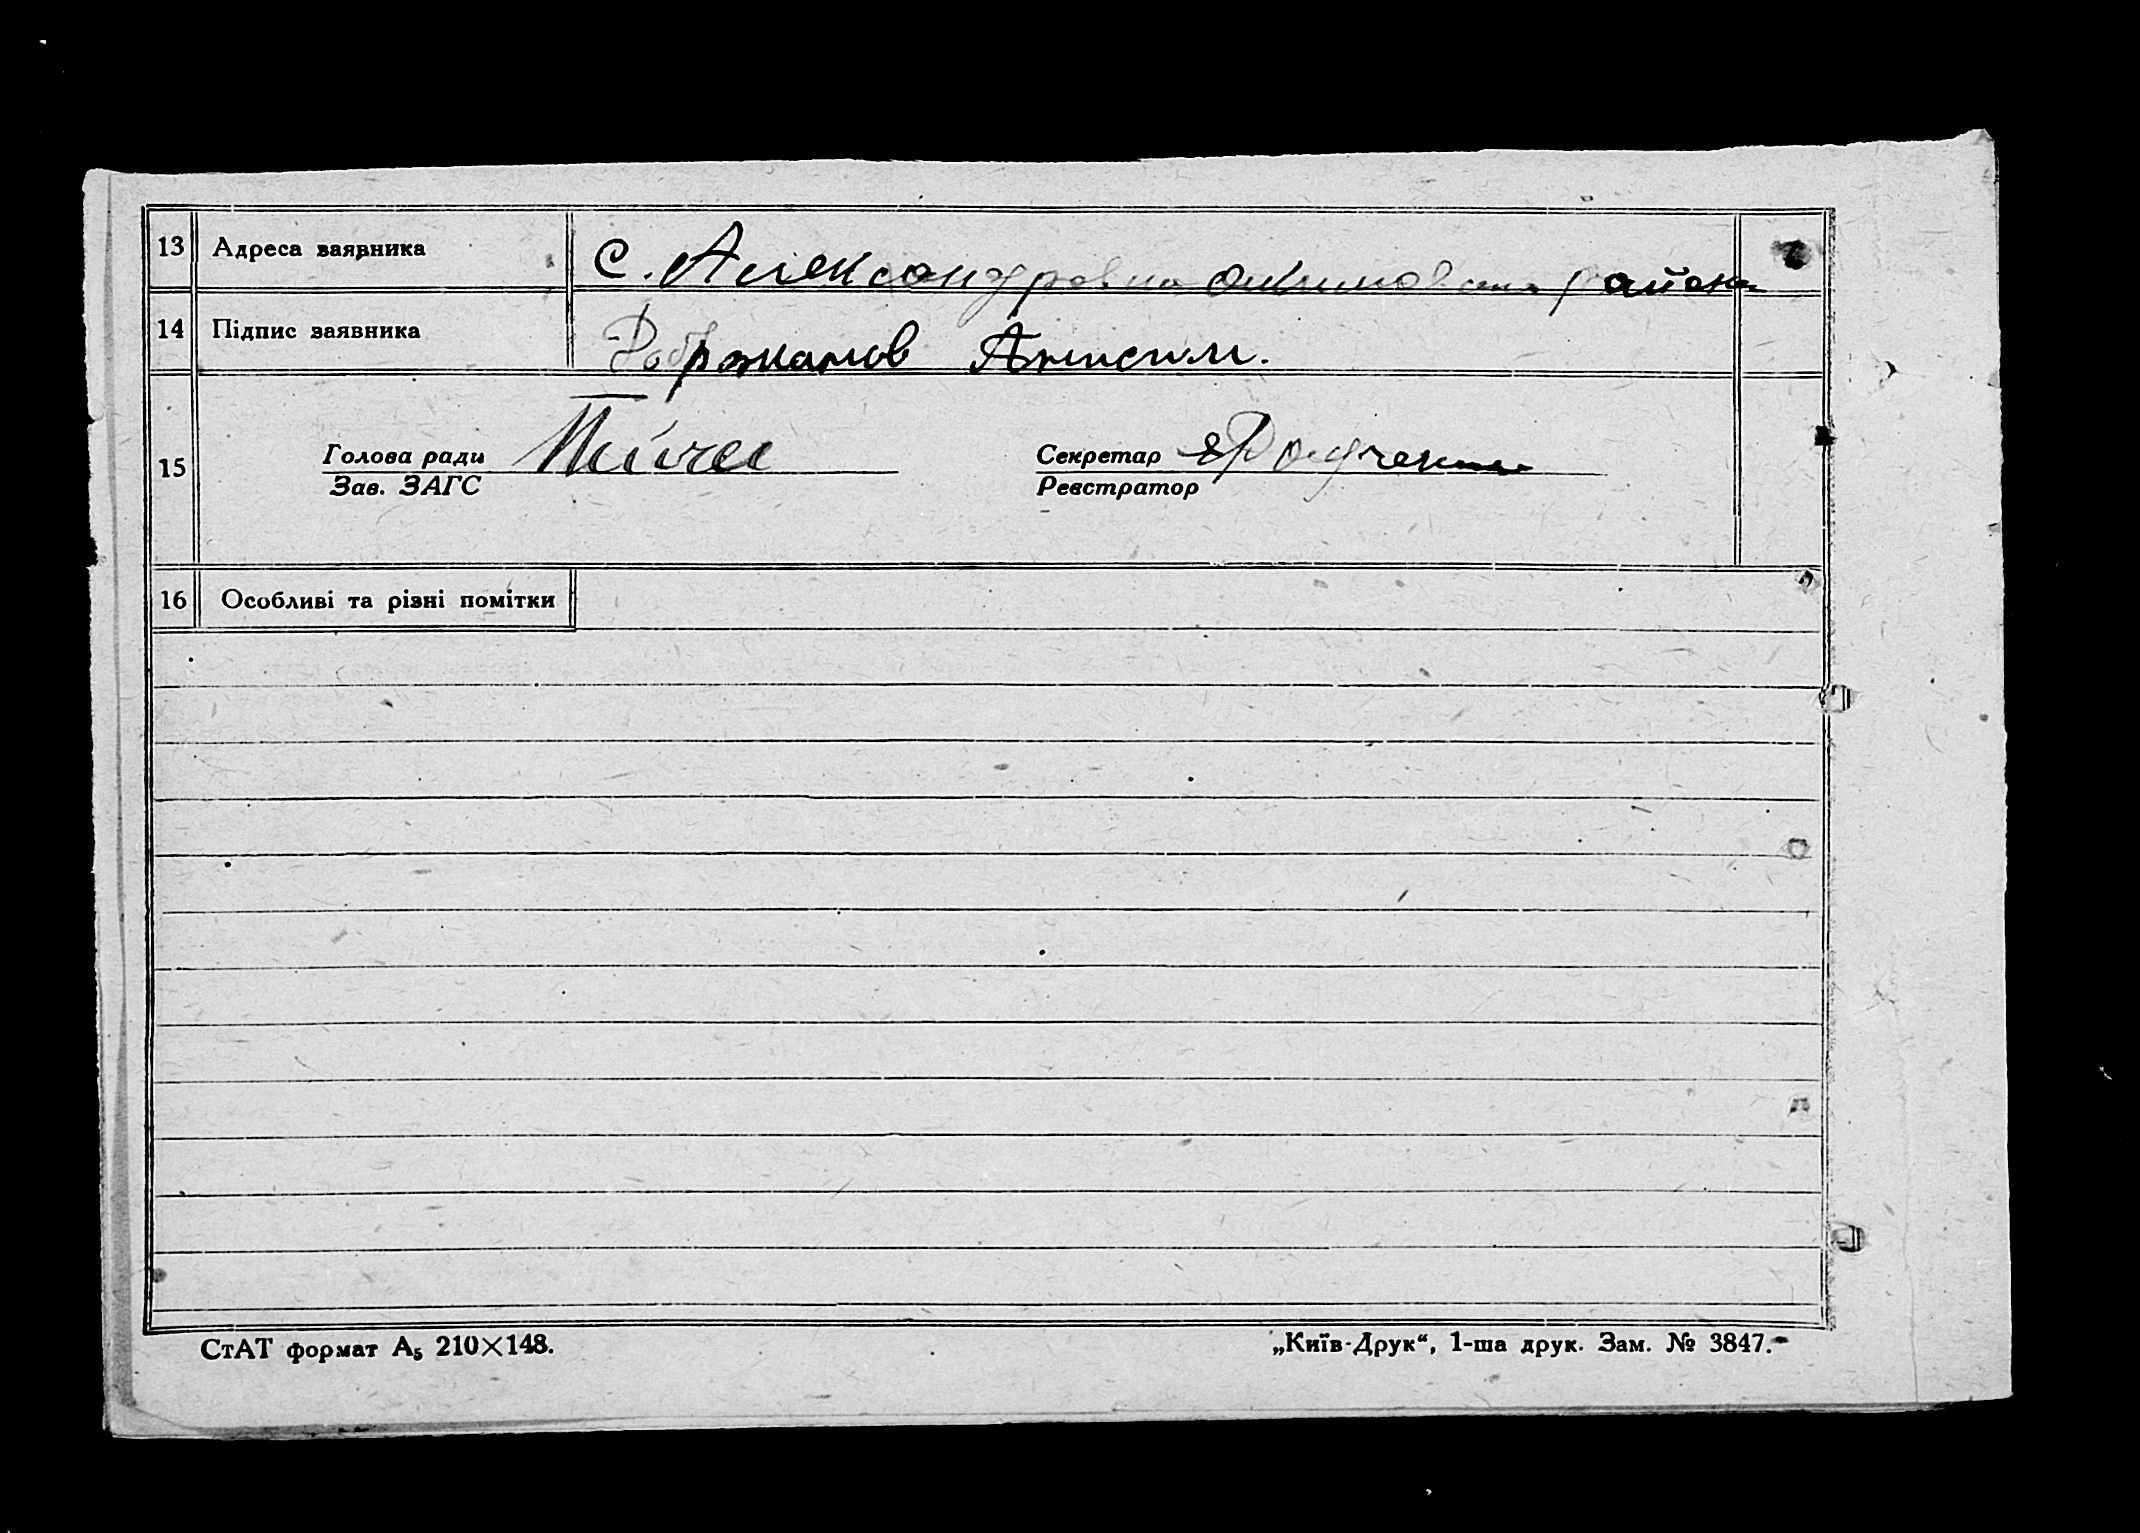 13 Адреса заявника с. Александровка Акимовского района
14 Підпис заявника Анисим.
15 Голова ради Секретар
Зав. ЗАГС Реєстратор
16 Особливі та різні помітки
СтАТ формат А₅ 210×148. „Київ-Друк“, 1-ша друк. Зам. № 3847.